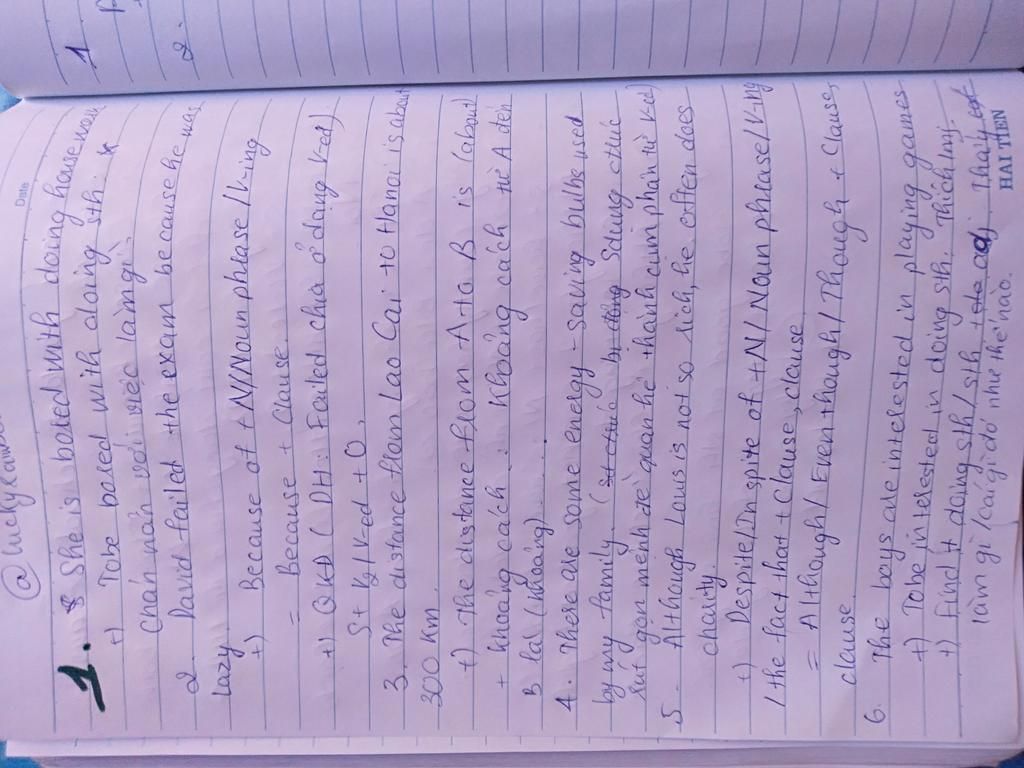 @luckyca
Date
1. She is bored with doing housework
+) Tobe bored with doing sth.
Chán nản với việc làm gì.
2. David faild the exam because he was
lazy.
+) Because of + N/Noun phrase/V-ing
= Because + Clause.
+) QKĐ (DH: Failed chia ở dạng Ved)
S + V2/Ved + O.
3. The distance from Lao Cai to Hanoi is about
300 Km.
+) The distance from A to B is (about)
+ khoảng cách .: Khoảng cách từ A đến
B là (khoảng) ....
4. There are some energy - saving bulbs used
by my family. Sdung cthuc
rút gọn mệnh đề quan hệ thành cụm phân từ Ved)
5. Although Louis is not so rich, he often does
charity.
+) Despite/In spite of + N/Noun phrase/Ving
/the fact that + Clause, clause
= Although/Even though/Though + Clause,
clause.
6. The boys are interested in playing games.
+) Tobe interested in doing sth. Thích làm j
+) Find it doing sth/sth adj. Thấy
làm gì /cái gì đó như thế nào.
HẢI TIẾN
1
2.